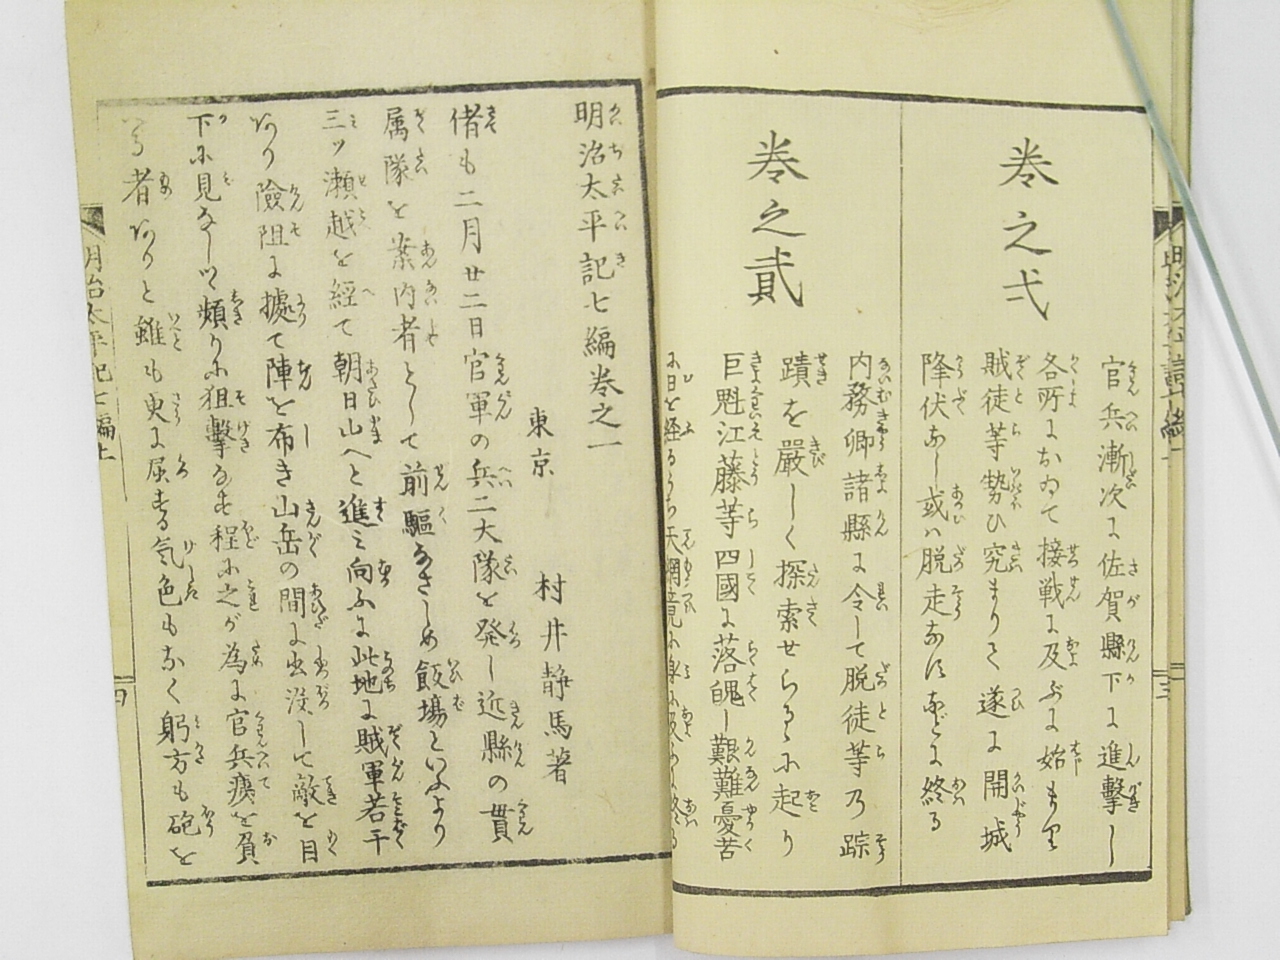 巻之弌
官兵漸次に佐賀縣下に進撃し
各所において接戦に及ぶに始まり
賊徒等勢ひ究まりて遂に開城
降伏なし或ハ脱走なすなどに終る
巻之貳
内務卿諸縣に令して脱徒等乃踪
蹟を嚴しく探索せらるゝに起り
巨魁江藤等四國に落魄し艱難憂苦
に日を経るうち天網竟に
明治太平記七編巻之一
東京 村井静馬著
偖も二月廿二日官軍の兵二大隊を発し近縣の貫
属隊を案内者として前驅なさしめ飯場といふより
三ツ瀬越を経て朝日山へと進み向ふに此地に賊軍若干
ありて險阻に據て陣を布き山岳の間に出没して敵を目
下に見なしつゝ頻りに狙撃なす程に之が為に官兵痍を負
う者ありと雖も更に屈する気色もなく躬方も砲を
明治太平記七編上
四